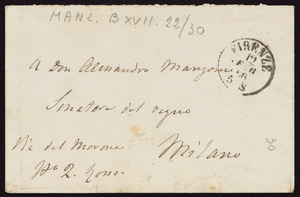 MANZ. B XVII. 22/30
FIRENZE
A Don Alessandro Manzoni
Senatore del regno
Via del Morone
Milano
No 2. Rosso.
30